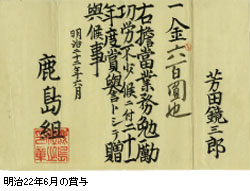 一金六百圓也
右擔當業務勉勵
功勞不少候ニ付二十一
年度賞與トシテ贈
與候事
明治二十二年六月
鹿島組
芳田鏡三郎
明治22年6月の賞与